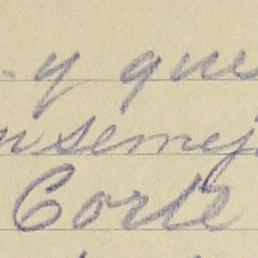 y que
nsemej
Corte